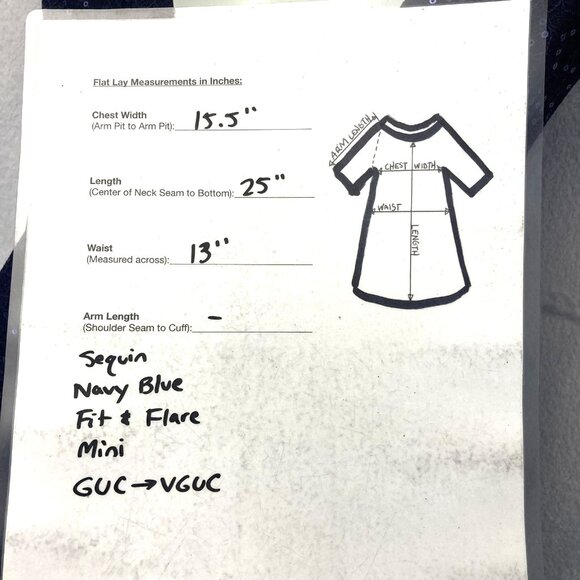 Flat Lay Measurements in Inches:
Chest Width
(Arm Pit to Arm Pit): 15.5"
Length
(Center of Neck Seam to Bottom): 25"
Waist
(Measured across): 13"
Arm Length
(Shoulder Seam to Cuff): -
Sequin
Navy Blue
Fit & Flare
Mini
GUC → VGUC
ARM LENGTH
CHEST WIDTH
WAIST
LENGTH